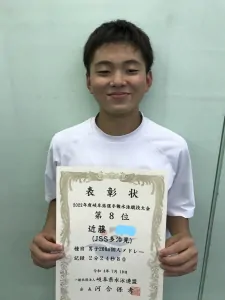 表彰状
2022年度岐阜県選手権水泳競技大会
第8位
近藤
(JSS多治見)
種目 男子200m個人メドレー
記録 2分24秒80
令和4年7月10日
一般社団法人岐阜県水泳連盟
会長 河合保孝